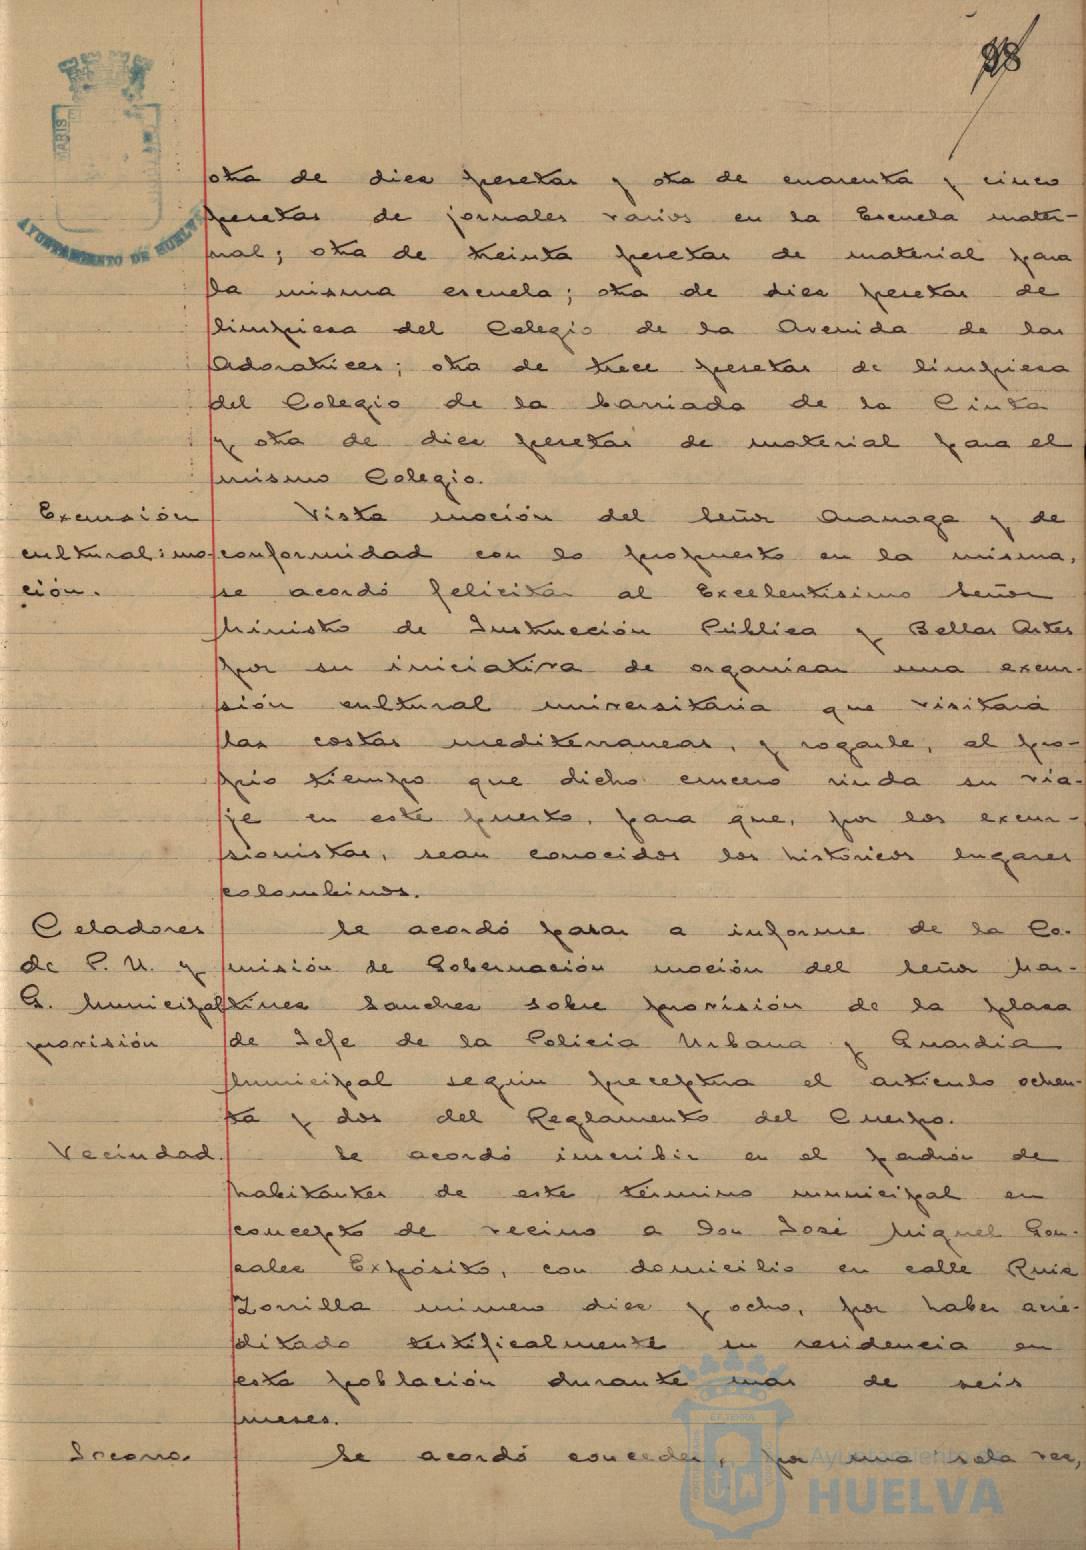 98
MARIS
AYUNTAMIENTO DE HUELVA
otra de diez pesetas y otra de cuarenta y cinco
pesetas de jornales varios en la Escuela mater-
nal; otra de treinta pesetas de material para
la misma escuela; otra de diez pesetas de
limpieza del Colegio de la Avenida de las
Adoratrices; otra de trece pesetas de limpieza
del Colegio de la barriada de la Cinta
y otra de diez pesetas de material para el
mismo Colegio.
Excursión
cultural: mo-
ción.
Vista moción del Señor Aranaga y de
conformidad con lo propuesto en la misma,
se acordó felicitar al Excelentísimo Señor
Ministro de Instrucción Pública y Bellas Artes
por su iniciativa de organizar una excur-
sión cultural universitaria que visitará
las costas mediterraneas, y rogarle, al pro-
pio tiempo que dicho crucero rinda su via-
je en este puerto, para que, por los excur-
sionistas, sean conocidos los históricos lugares
colombinos.
Celadores
de P. U. y
G. Municipal
provisión
Se acordó pasar a informe de la Co-
misión de Gobernación moción del Señor Mar-
tínez Sanchez sobre provisión de la plaza
de Jefe de la Policia Urbana y Guardia
Municipal según preceptua el articulo ochen-
ta y dos del Reglamento del Cuerpo.
Vecindad.
Se acordó inscribir en el padrón de
habitantes de este término municipal en
concepto de vecino a Don José Miguel Gon-
zalez Expósito, con domicilio en calle Ruiz
Zorrilla número diez y ocho, por haber acre-
ditado testificalmente su residencia en
esta población durante mas de seis
meses.
Socorro.
Se acordó conceder, por una sola vez,
Ayuntamiento de
HUELVA